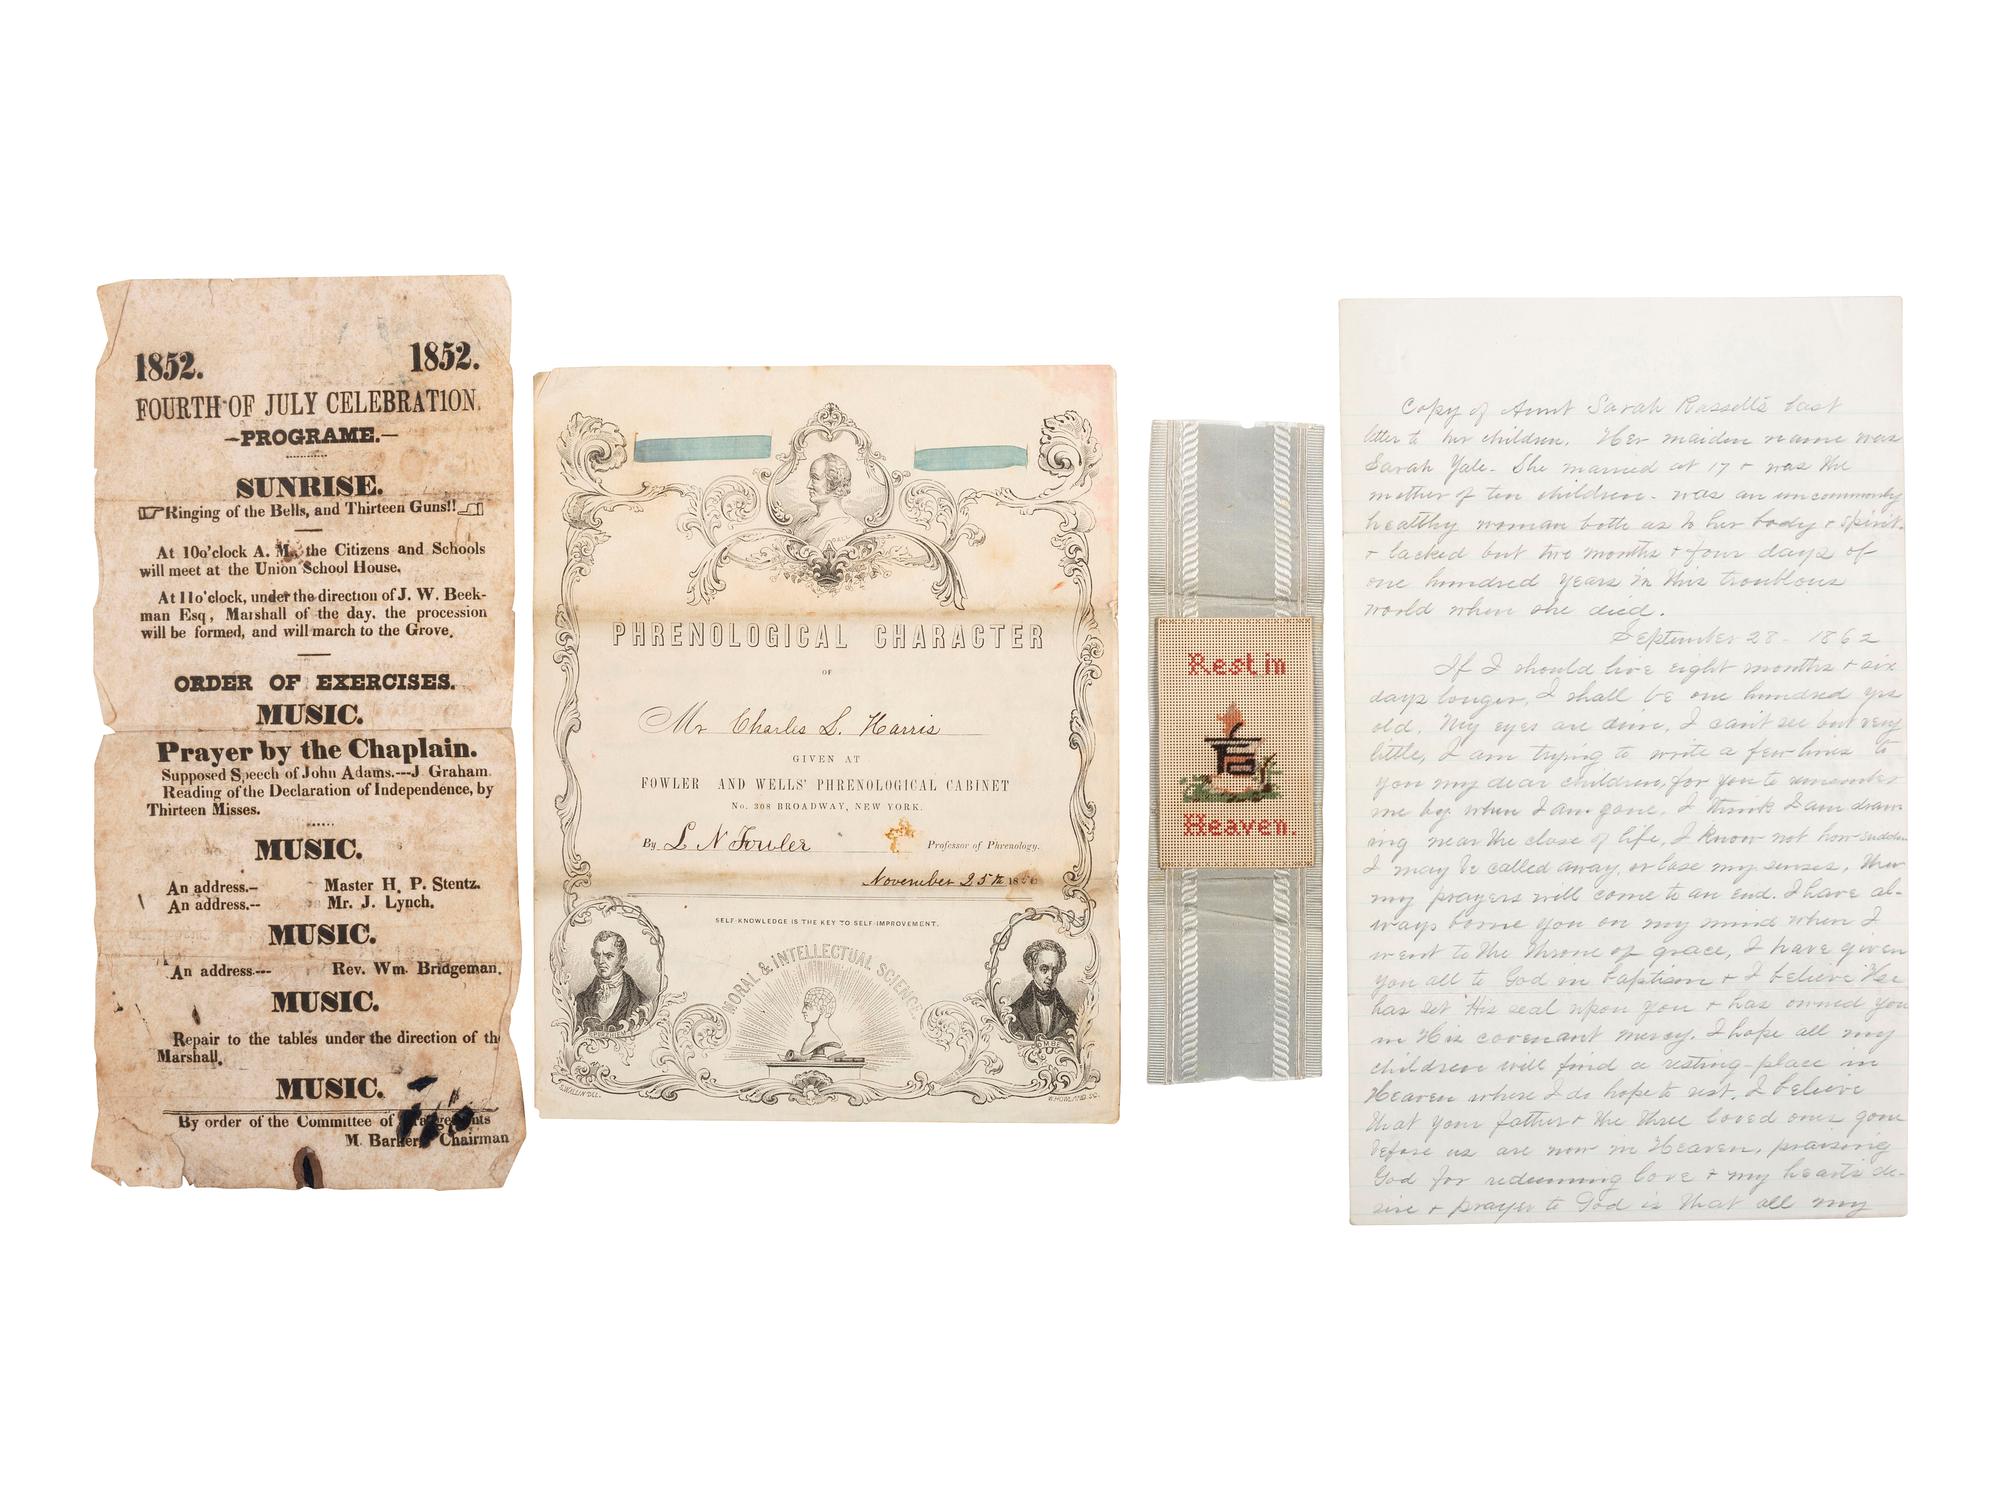 1852. 1852.
FOURTH OF JULY CELEBRATION.
—PROGRAME.—
SUNRISE.
Ringing of the Bells, and Thirteen Guns!!
At 10o'clock A. M., the Citizens and Schools
will meet at the Union School House.
At 11o'clock, under the direction of J. W. Beek-
man Esq, Marshall of the day, the procession
will be formed, and will march to the Grove.
ORDER OF EXERCISES.
MUSIC.
Prayer by the Chaplain.
Supposed Speech of John Adams.---J. Graham.
Reading of the Declaration of Independence, by
Thirteen Misses.
MUSIC.
An address.-- Master H. P. Stentz.
An address.-- Mr. J. Lynch.
MUSIC.
An address--- Rev. Wm. Bridgeman.
MUSIC.
Repair to the tables under the direction of th
Marshall.
MUSIC.
By order of the Committee of
M. Barker Chairman
PHRENOLOGICAL CHARACTER
OF
Mr Charles S. Harris
GIVEN AT
FOWLER AND WELLS' PHRENOLOGICAL CABINET
No. 308 BROADWAY, NEW YORK.
By L N Fowler Professor of Phrenology.
November 25th 185
SELF-KNOWLEDGE IS THE KEY TO SELF-IMPROVEMENT.
MORAL & INTELLECTUAL SCIENCE
SPURZHEIM
COMBE
W. HOWLAND. SC.
Rest in
Heaven.
Copy of Aunt Sarah Russell's last
letter to her children. Her maiden name was
Sarah Yale. She married at 17 + was the
mother of ten children - was an uncommonly
healthy woman both as to her body + spirit.
+ lacked but two months + four days of
one hundred years in this troublous
world when she died.
September 28 - 1862
If I should live eight months + six
days longer, I shall be one hundred yrs
old. My eyes are dim, I can't see but very
little, I am trying to write a few lines to
you my dear children, for you to remember
me by when I am gone. I think I am draw-
ing near the close of life, I know not how sudden
I may be called away, or lose my senses, then
my prayers will come to an end. I have al-
ways borne you on my mind when I
went to the throne of grace, I have given
you all to God in baptism + I believe He
has set His seal upon you + has owned you
in His covenant mercy. I hope all my
children will find a resting-place in
Heaven where I do hope to rest. I believe
that your father + the three loved ones gone
before us are now in Heaven, praising
God for redeeming love + my heart's de-
sire + prayer to God is that all my